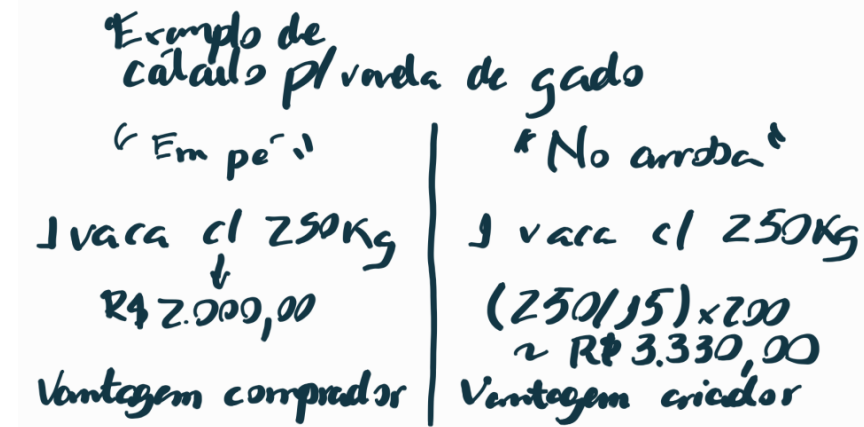 Exemplo de
cálculo p/ venda de gado
"Em pé"
1 vaca c/ 250Kg
R$ 2.000,00
Vantagem comprador
"No arroba"
1 vaca c/ 250Kg
(250/15)x200
~ R$ 3.330,00
Vantagem criador